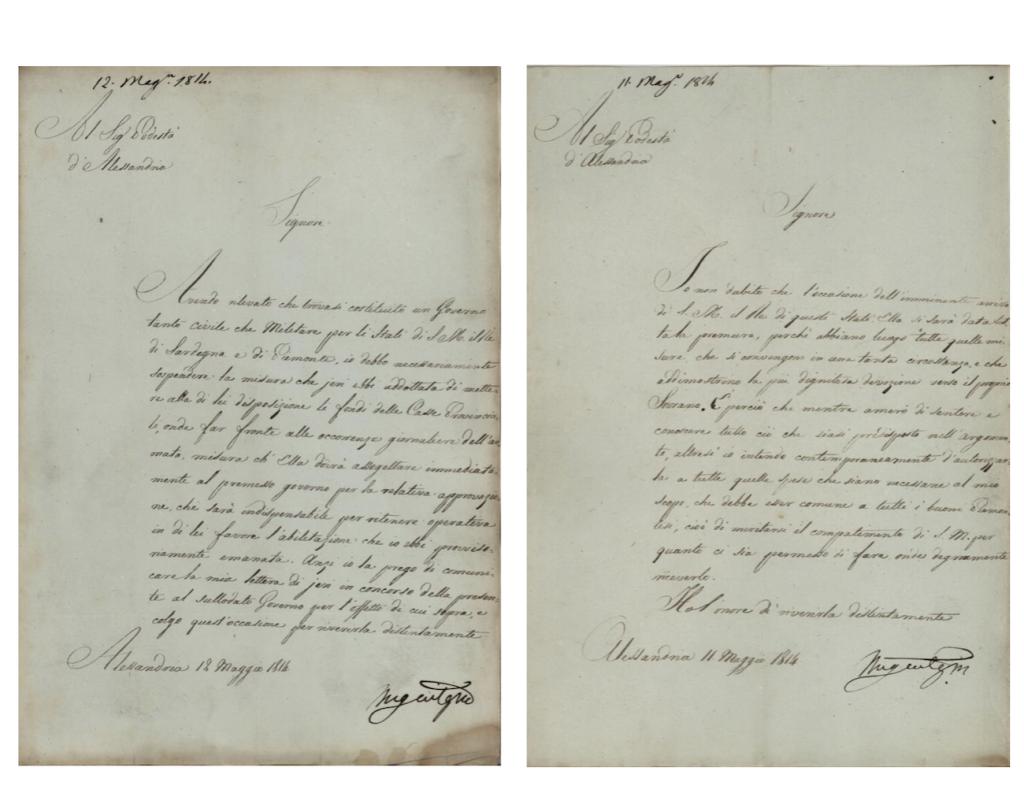 12. Magg.º 1814.
Al Sig.r Podestà
d'Alessandria
Signore
Avendo rilevato che trovasi costituito un Governo
tanto civile che Militare per li Stati di S. M. il Re
di Sardegna e di Piemonte, io debbo necessariamente
sospendere la misura che jeri ebbi addottata di mette-
re alla di lei disposizione le fondi delle Casse Provincia-
li, onde far fronte alle occorrenze giornaliere dell'ar-
mata, misura ch'Ella dovrà assogettare immediata-
mente al premesso governo per la relativa approvazio-
ne, che sarà indispensabile per ritenere operativa
in di lei favore l'abilitazione che io ebbi provviso-
riamente emanata. Anzi io la prego di comuni-
care la mia lettera di jeri in concorso della presen-
te al sullodato Governo per l'effetto di cui sopra, e
colgo quest'occasione per riverirla distintamente
Alessandria 12 Maggio 1814
Nugent
11. Magg.º 1814
Al Sig.r Podestà
d'Alessandria
Signore
Io non dubito che l'occasione dell'imminente arrivo
di S. M. il Re di questi Stati Ella si sarà data tut-
ta la premura, perchè abbiano luogo tutte quelle mi-
sure, che si convengon in una tanta circostanza, e che
addimostrino la più dignitosa devozione verso il proprio
Sovrano. È perciò che mentre amerò di sentere e
conoscere tutto ciò che siasi predisposto nell'argomen-
to, altresì io intendo contemporaneamente d'autorizzar-
la a tutte quelle spese che siano necessarie al mio
scopo, che debbe esser comune a tutti i buoni Piemon-
tesi, cioè di meritarsi il compatimento di S. M. per
quanto ci sia permesso di fare onde degnamente
riceverlo.
Ho l'onore di riverirla distintamente
Alessandria 11 Maggio 1814
Nugent